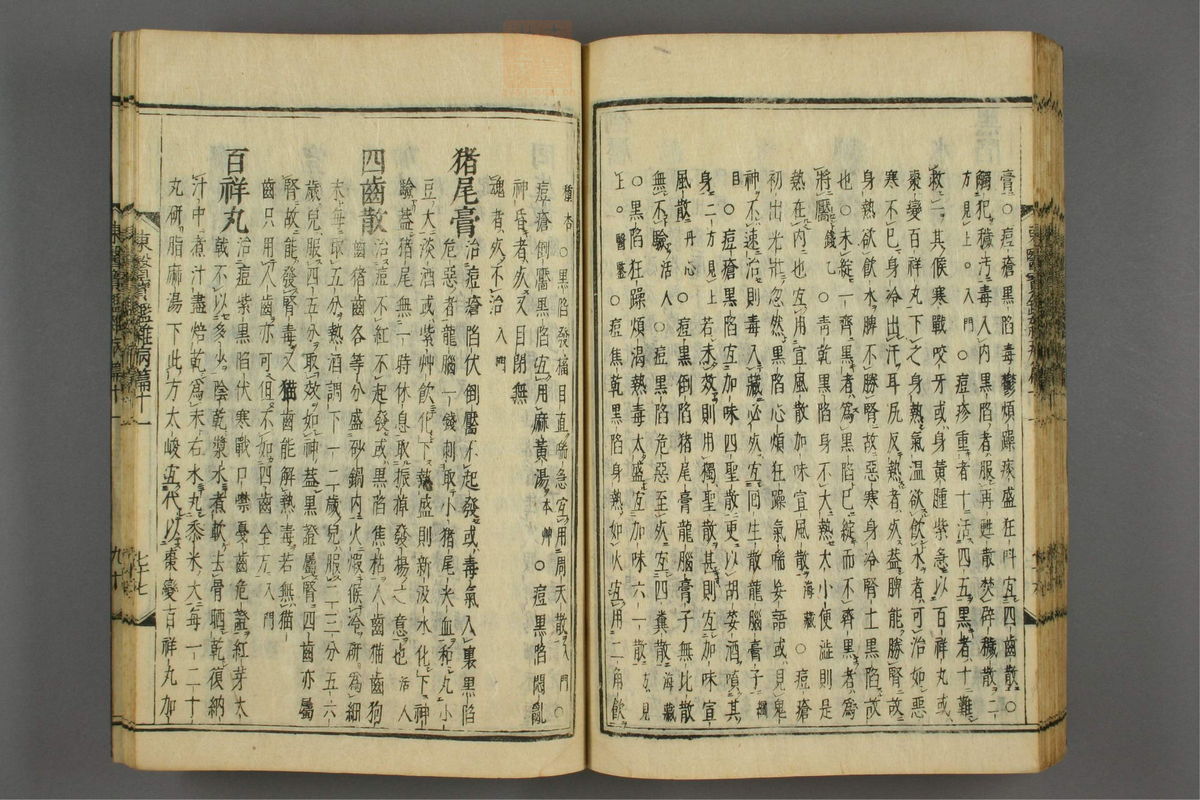 膏○痘瘡黑陷毒鬱煩躁疼盛狂叫宜四齒散○
觸犯穢汚毒入内黑陷者服再甦散焚辟穢散二
方見上入門○痘疹重者十活四五黑者十難
救一其候寒戰咬牙或身黃腫紫急以百祥丸或
棗變百祥丸下之身熱氣温欲飮水者可治如惡
寒不已身冷出汗耳尻反熱者死益脾能勝腎故
身熱欲飮水脾不勝腎故惡寒身冷腎土黑陷故
也○未綻一齊黑者爲黑陷已綻而不齊黑者爲
將靨錢乙○靑乾黑陷身不大熱大小便澁則是
熱在内也宜用宣風散加味宣風散海藏○痘瘡
初出光壯忽然黑陷心煩狂躁氣喘妄語或見鬼
神不速治則毒入藏必死宜囘生散龍腦膏子綱
目○痘瘡黑陷宜加味四聖散更以胡荽酒噴其
身二方見上若未效則用獨聖散甚則宜加味宣
風散丹心○痘黑倒陷猪尾膏龍腦膏子無比散
無不驗活人○痘黑陷危惡至死宜四糞散海藏
○黑陷狂躁煩渴熱毒太盛宜加味六一散方見
上醫鑒○痘焦乾黑陷身熱如火宜用二角飮
種杏○黑陷發搐目直喘急宜用周天散入門○
痘瘡倒靨黑陷宜用麻黃湯本艸○痘黑陷悶亂
神昏者死又目閉無
魂者死不治入門
猪尾膏 治痘瘡陷伏倒靨不起發或毒氣入裏黑陷
危惡者龍腦一錢刺取小猪尾尖血和丸小
豆大淡酒或紫艸飮化下熱盛則新汲水化下神
驗蓋猪尾無一時休息取振掉發揚之意也活人
四齒散 治痘不紅不起發或黑陷焦枯人齒猫齒狗
齒猪齒各等分盛砂鍋内火煆候冷硏爲細
末每取五分熱酒調下一二歲兒服二三分五六
歲兒服四五分取效如神蓋黑證屬腎四齒亦屬
腎故能發腎毒又猫齒能解熱毒若無猫
齒只用人齒亦可但不如四齒全方入門
百祥丸 治痘紫黑陷伏寒戰口噤憂齒危證紅芽大
戟不以多少陰乾漿水煮軟去骨晒乾復納
汁中煮汁盡焙乾爲末右水丸黍米大每一二十
丸硏脂麻湯下此方太峻宜代以棗變百祥丸加
東醫寶鑑雜病篇十一
七七
九十